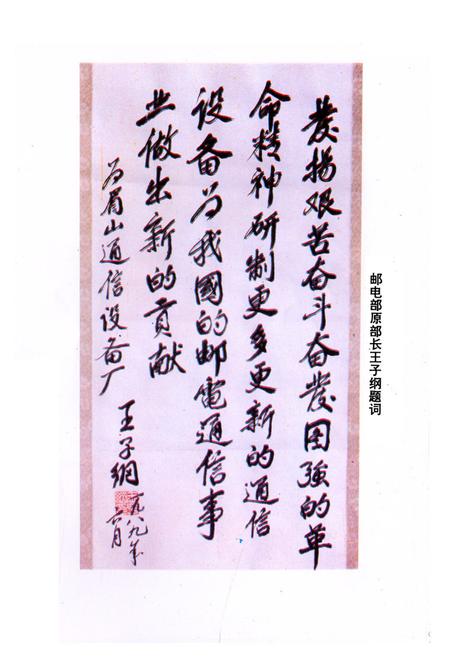 發扬艰苦奋斗奋發图強的革
命精神研制更多更新的通信
设备为我國的邮電通信事
业做出新的贡献
为眉山通信设备厂
王子纲
一九八九年
六月
邮电部原部长王子纲题词